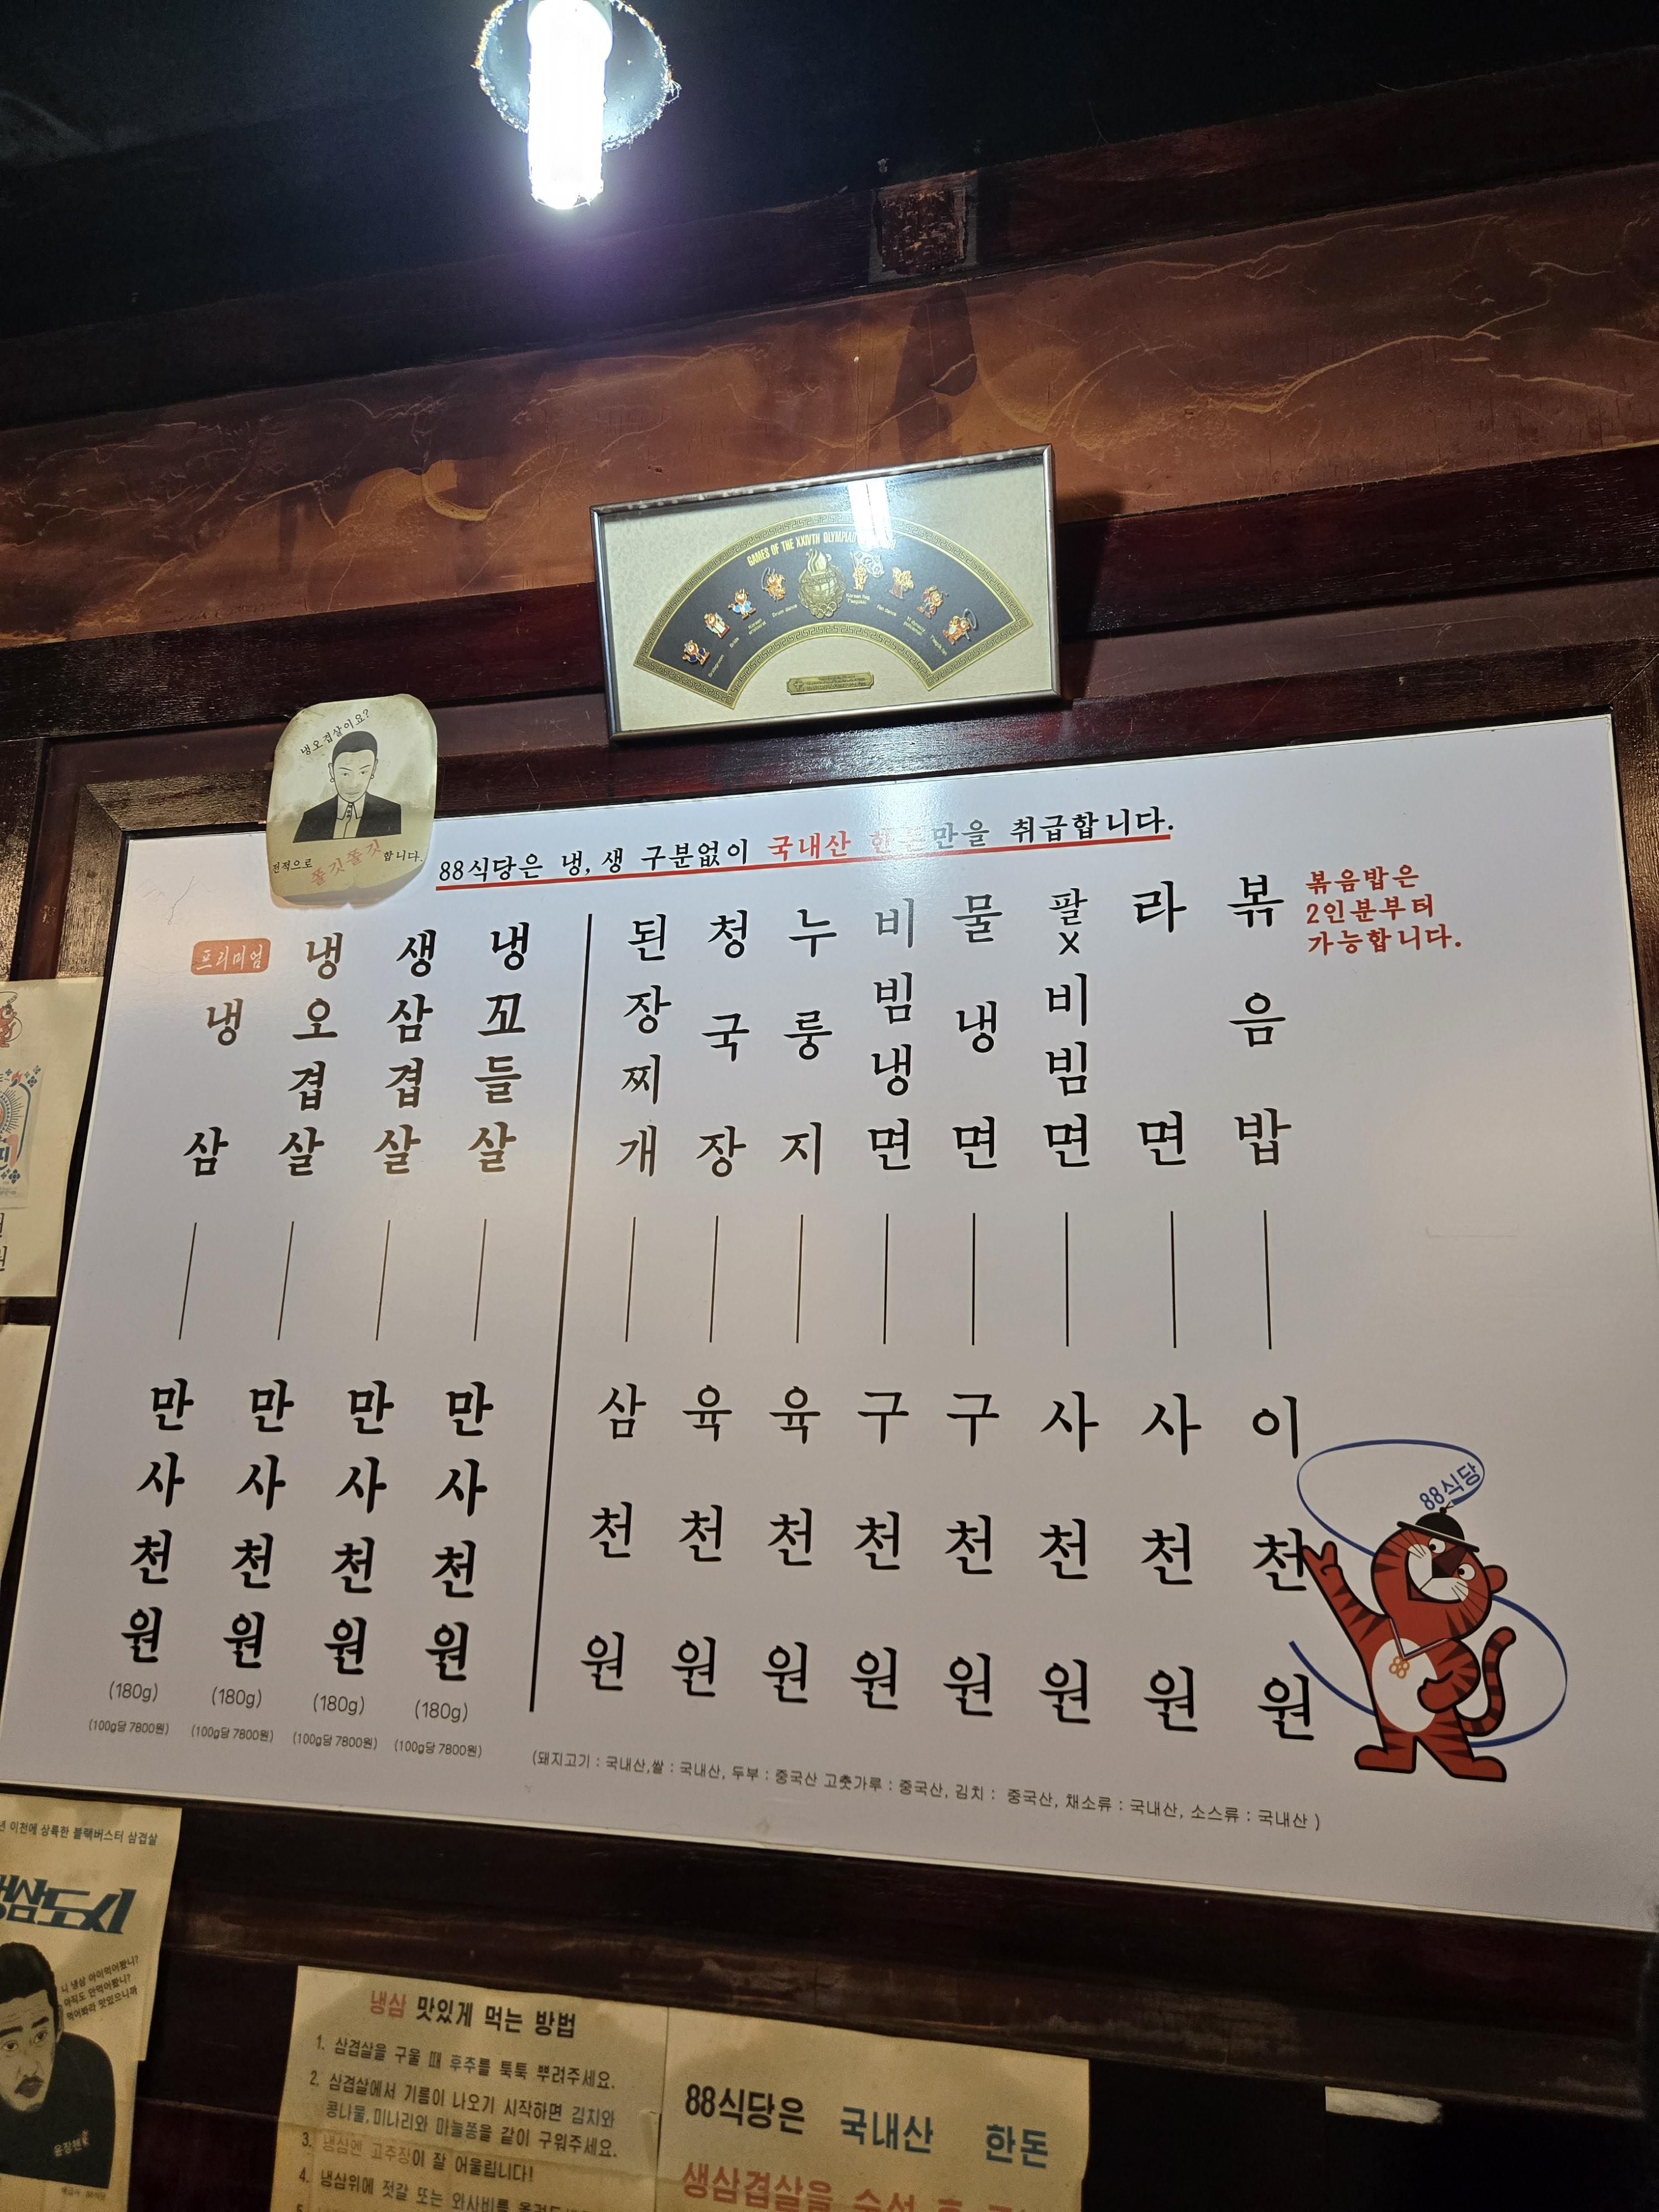 GAMES OF THE XXIVTH OLYMPIAD
냉오겹살이요?
전적으로 쫄깃쫄깃 합니다.
88식당은 냉, 생 구분없이 국내산 한돈만을 취급합니다.
프리미엄
냉삼 만사천원 (180g) (100g당 7800원)
냉오겹살 만사천원 (180g) (100g당 7800원)
생삼겹살 만사천원 (180g) (100g당 7800원)
냉꼬들살 만사천원 (180g) (100g당 7800원)
된장찌개 삼천원
청국장 육천원
누룽지 육천원
비빔냉면 구천원
물냉면 구천원
팔X비빔면 사천원
라면 사천원
볶음밥 이천원
볶음밥은
2인분부터
가능합니다.
88식당
(돼지고기 : 국내산,쌀 : 국내산, 두부 : 중국산 고춧가루 : 중국산, 김치 : 중국산, 채소류 : 국내산, 소스류 : 국내산 )
이천에 상륙한 블랙버스터 삼겹살
냉삼도사
니 냉삼 아이먹어봤니?
아직도 안먹어봤니?
먹어봐라 맛있으니까
냉삼 맛있게 먹는 방법
1. 삼겹살을 구울 때 후추를 툭툭 뿌려주세요.
2. 삼겹살에서 기름이 나오기 시작하면 김치와
콩나물,미나리와 마늘쫑을 같이 구워주세요.
3. 냉삼엔 고추장이 잘 어울립니다!
4. 냉삼위에 젓갈 또는 와사비를
88식당은 국내산 한돈
생삼겹살을